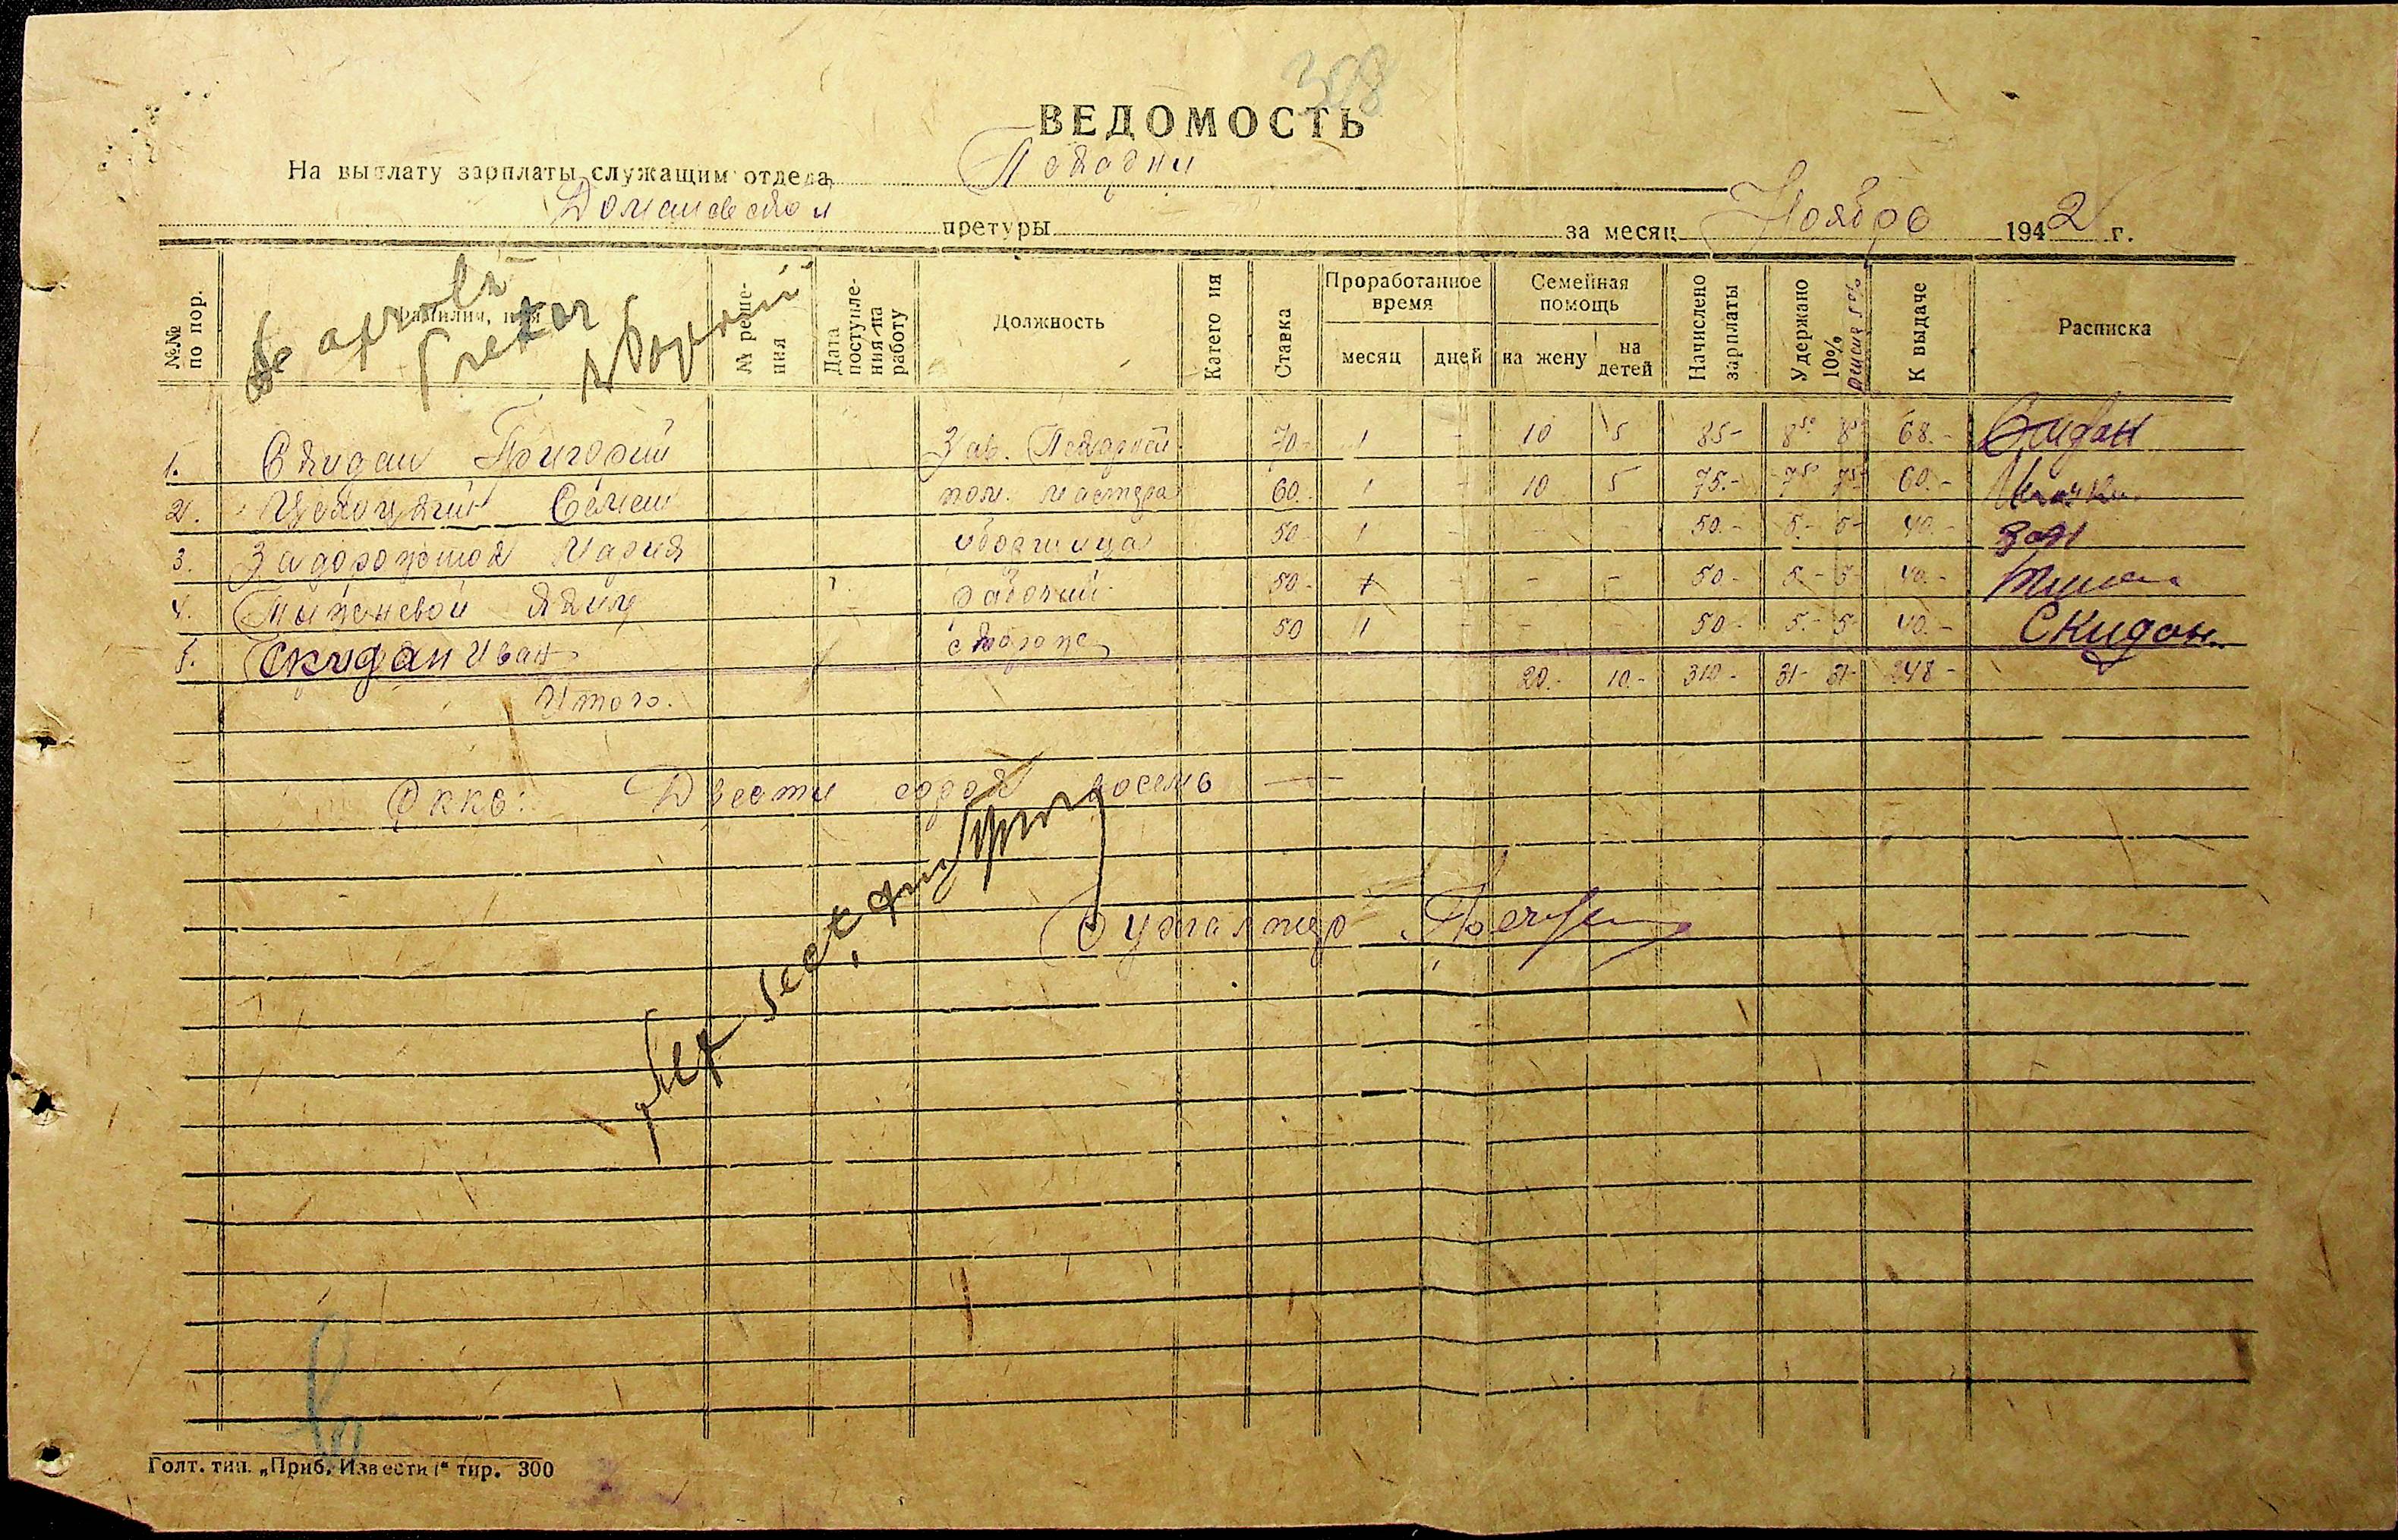 308
ВЕДОМОСТЬ
На выплату зарплаты служащим отдела Пекарни
Домановской претуры за месяц Ноябрь 1942 г.
№№ по пор. Фамилия, имя № решения Дата поступления на работу Должность Категория Ставка Проработанное время месяц дней Семейная помощь на жену на детей Начислено зарплаты Удержано 10% К выдаче Расписка
Se aprobă
Pretor
1. Скидан Григорий Зав. Пекарней 70- 1 - 10 5 85- 8 50 8 50 68.- Скидан
2. Семен пом. мастера 60.- 1 - 10 5 75.- 7 50 7 50 60.-
3. Задорожная Мария уборщица 50- 1 - - - 50.- 5.- 5- 40.- Зад
4. Яким рабочий 50- 1 - - - 50- 5.- 5- 40.-
5. Скидан Иван сторож 50 1 - - - 50- 5.- 5- 40.- Скидан
Итого. 20.- 10.- 310- 31- 31- 248-
Двести сорок восемь
Бухгалтер
Голт. тип. „Приб. Известия“ тир. 300